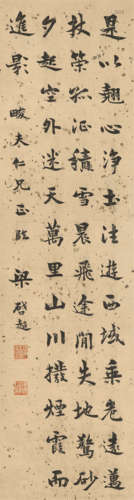 是以翹心淨土法遊西域乘危遠邁
杖策孤征積雪晨飛途間失地驚砂
夕起空外迷天萬里山川撥煙霞而
進影
夫仁兄正
梁啓超